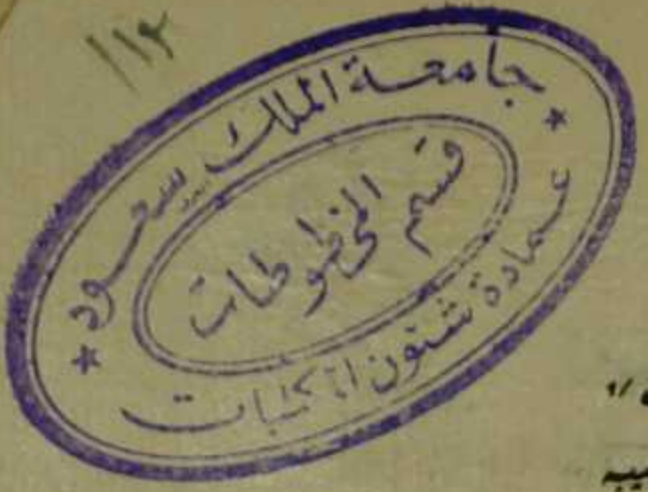 ١١٢
جامعة الملك سعود
قسم المخطوطات
عمادة شئون المكتبات